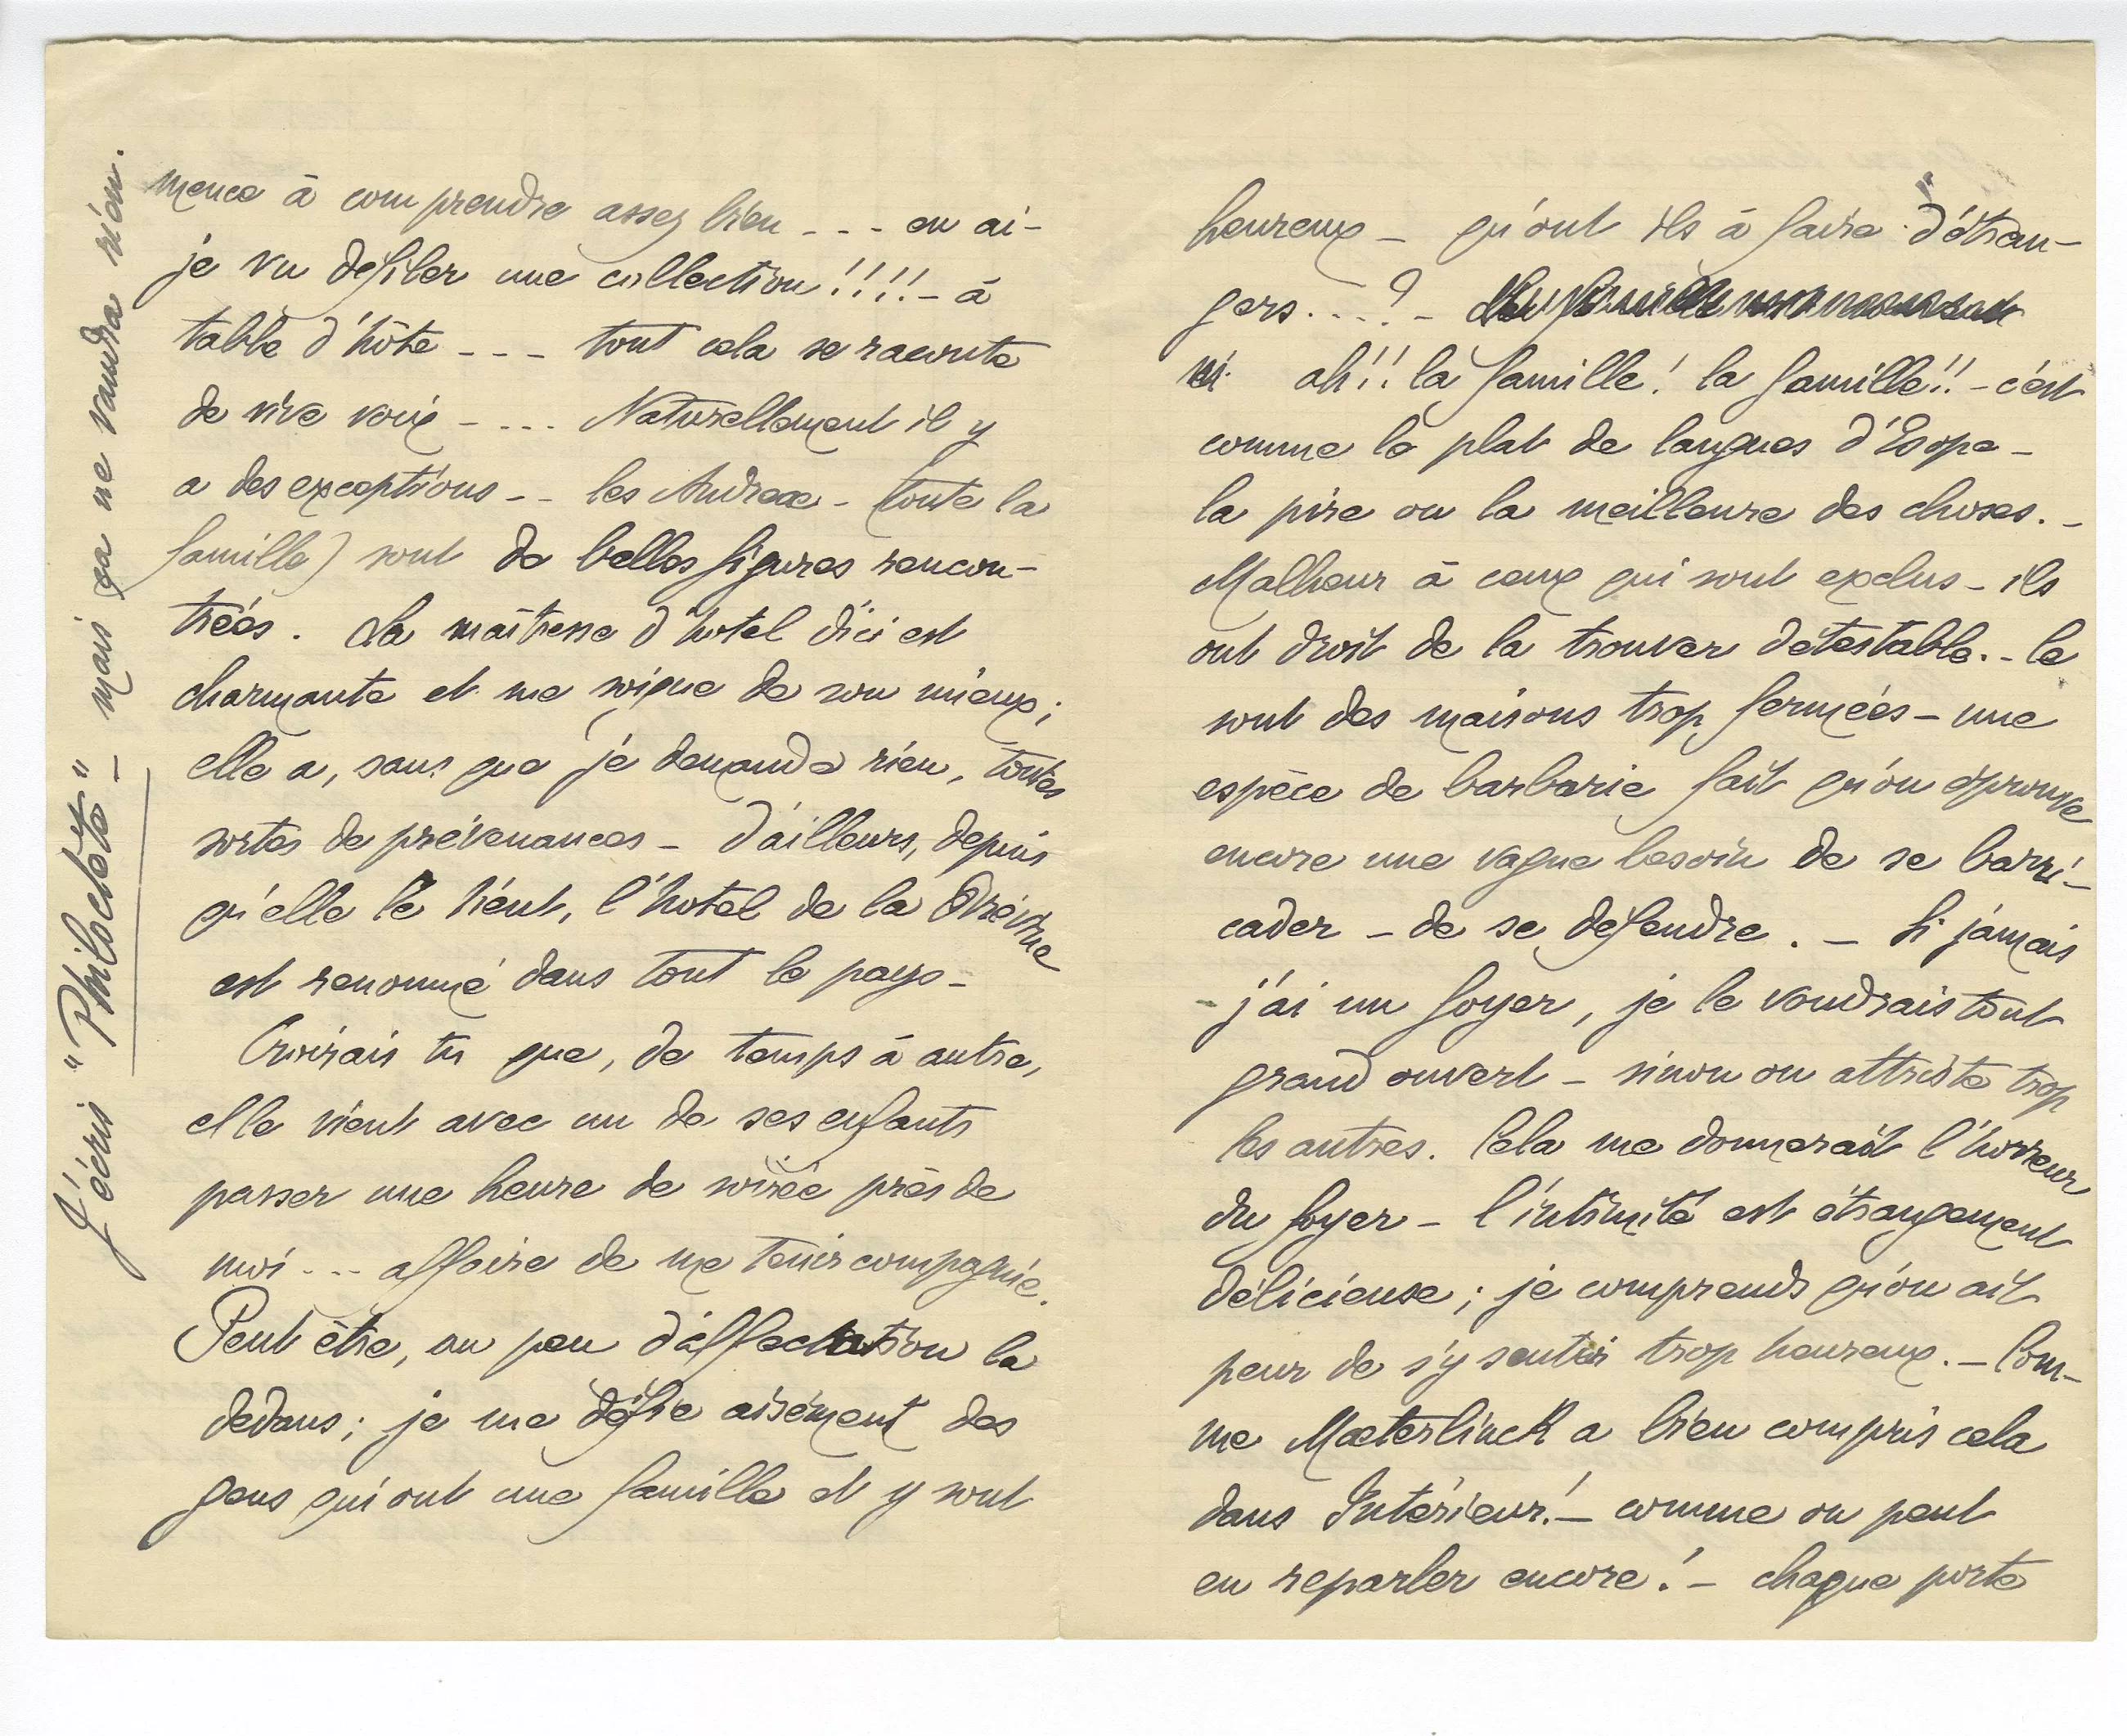 mence à comprendre assez bien - - - en ai-
je vu défiler une collection!!!! - à
table d'hôte - - - tout cela se raconte
de vive voix - - . . Naturellement il y
a des exceptions - - les Andreae - toute la
famille) sont de belles figures rencon-
trées. La maîtresse d'hotel d'ici est
charmante et me soigne de son mieux;
elle a, sans que je demande rien, toutes
sortes de prévenances - d'ailleurs, depuis
qu'elle le tient, l'hotel de la Brévine
est renommé dans tout le pays -
Croirais tu que, de temps à autre,
elle vient avec un de ses enfants
passer une heure de soirée près de
moi - - - affaire de me tenir compagnie.
Peut être, un peu d'affectation la
dedans; je me défie aisément des
gens qui ont une famille et y sont
J'écris "Philoctète" - mais ça ne vaudra rien.
heureux - qu'ont ils à faire d'étran-
gers . . - ? -
ah!! la famille! la famille!! - c'est
comme le plat de langues d'Esope -
la pire ou la meilleure des choses. -
Malheur à ceux qui sont exclus - ils
ont droit de la trouver détestable. - Ce
sont des maisons trop fermées - une
espèce de barbarie fait qu'on éprouve
encore une vague besoin de se barri-
cader - de se défendre. - Si jamais
j'ai un foyer, je le voudrais tout
grand ouvert - sinon on attriste trop
les autres. Cela me donnerait l'horreur
du foyer - l'intimité est étrangement
délicieuse; je comprends qu'on ait
peur de s'y sentir trop heureux. - Com-
me Mæterlinck a bien compris cela
dans Intérieur! - comme on peut
en reparler encore! - chaque porte